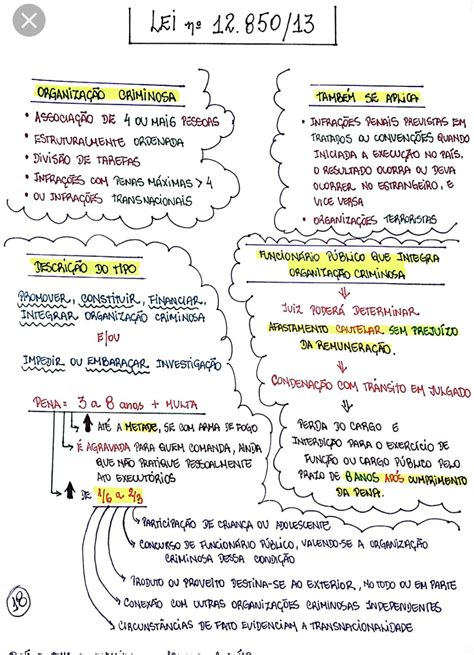 LEI nº 12.850/13
ORGANIZAÇÃO CRIMINOSA
• ASSOCIAÇÃO DE 4 OU MAIS PESSOAS
• ESTRUTURALMENTE ORDENADA
• DIVISÃO DE TAREFAS
• INFRAÇÕES COM PENAS MÁXIMAS > 4
• OU INFRAÇÕES TRANSNACIONAIS
TAMBÉM SE APLICA
• INFRAÇÕES PENAIS PREVISTAS EM
TRATADOS OU CONVENÇÕES QUANDO
INICIADA A EXECUÇÃO NO PAÍS,
O RESULTADO OCORRA OU DEVA
OCORRER NO ESTRANGEIRO, E
VICE VERSA
• ORGANIZAÇÕES TERRORISTAS
DESCRIÇÃO DO TIPO
PROMOVER, CONSTITUIR, FINANCIAR,
INTEGRAR ORGANIZAÇÃO CRIMINOSA
E/OU
IMPEDIR OU EMBARAÇAR INVESTIGAÇÃO
PENA = 3 a 8 anos + MULTA
ATÉ A METADE, SE COM ARMA DE FOGO
É AGRAVADA PARA QUEM COMANDA, AINDA
QUE NÃO PRATIQUE PESSOALMENTE
ATO EXECUTÓRIOS
DE 1/6 a 2/3
PARTICIPAÇÃO DE CRIANÇA OU ADOLESCENTE
CONCURSO DE FUNCIONÁRIO PÚBLICO, VALENDO-SE A ORGANIZAÇÃO
CRIMINOSA DESSA CONDIÇÃO
PRODUTO OU PROVEITO DESTINA-SE AO EXTERIOR, NO TODO OU EM PARTE
CONEXÃO COM OUTRAS ORGANIZAÇÕES CRIMINOSAS INDEPENDENTES
CIRCUNSTÂNCIAS DE FATO EVIDENCIAM A TRANSNACIONALIDADE
FUNCIONÁRIO PÚBLICO QUE INTEGRA
ORGANIZAÇÃO CRIMINOSA
JUIZ PODERÁ DETERMINAR
AFASTAMENTO CAUTELAR SEM PREJUÍZO
DA REMUNERAÇÃO.
CONDENAÇÃO COM TRÂNSITO EM JULGADO
PERDA DO CARGO E
INTERDIÇÃO PARA O EXERCÍCIO DE
FUNÇÃO OU CARGO PÚBLICO PELO
PRAZO DE 8 ANOS APÓS CUMPRIMENTO
DA PENA.
18